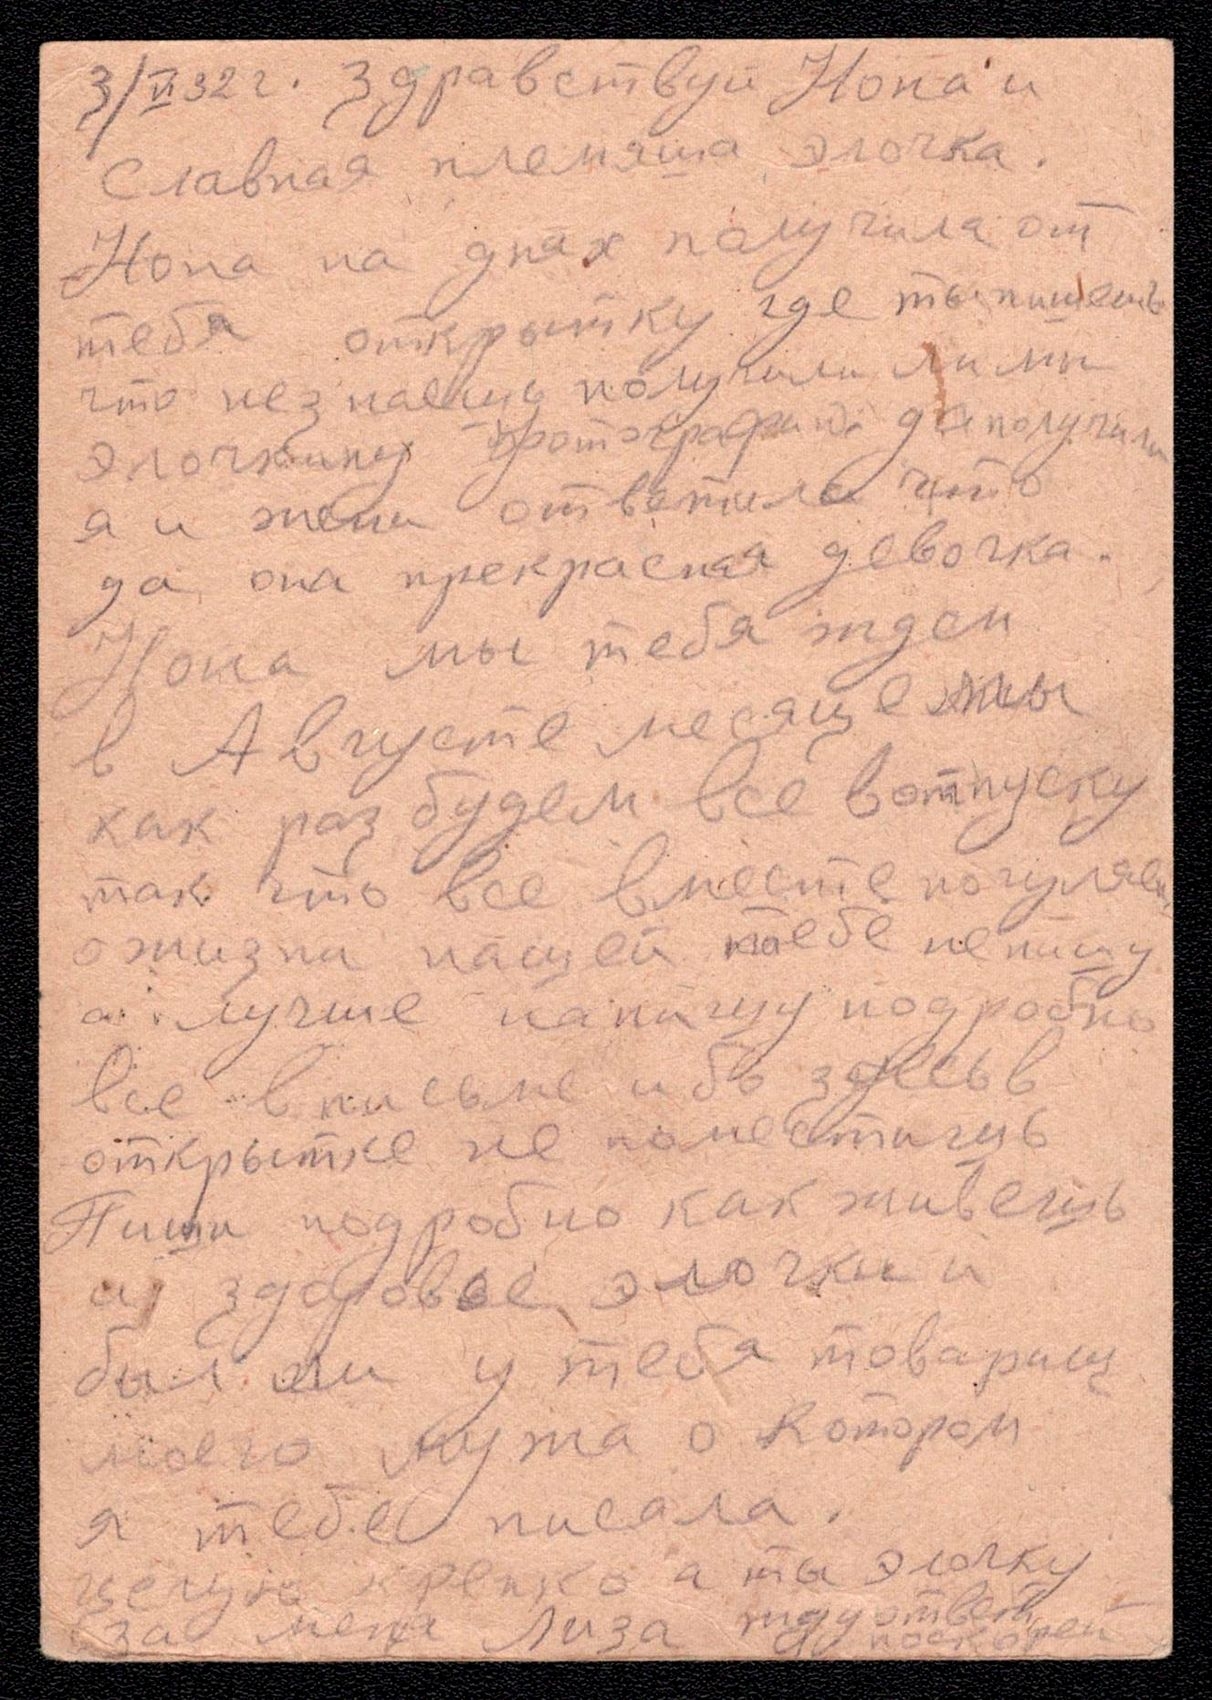 3/VI 32 г. Здравствуй Нона и
Славная племяша элочка.
Нона на днях получила от
тебя открытку где ты пишешь
что незнаешь получили ли мы
элочкину фотографию да получили
я и жени ответила что
да она прекрасная девочка.
Нона мы тебя ждем
в Августе месяце мы
как раз будем все вотпуску
так что все вместе погуляем
ожизни нашей тебе непишу
а лучше напишу подробно
все в письме ибо здесь в
открытке не поместишь
Пиши подробно как живешь
и здоровье элочки и
был ли у тебя товарищ
моего мужа о котором
я тебе писала.
целую крепко а ты элочку
за меня Лиза жду ответ
поскорей